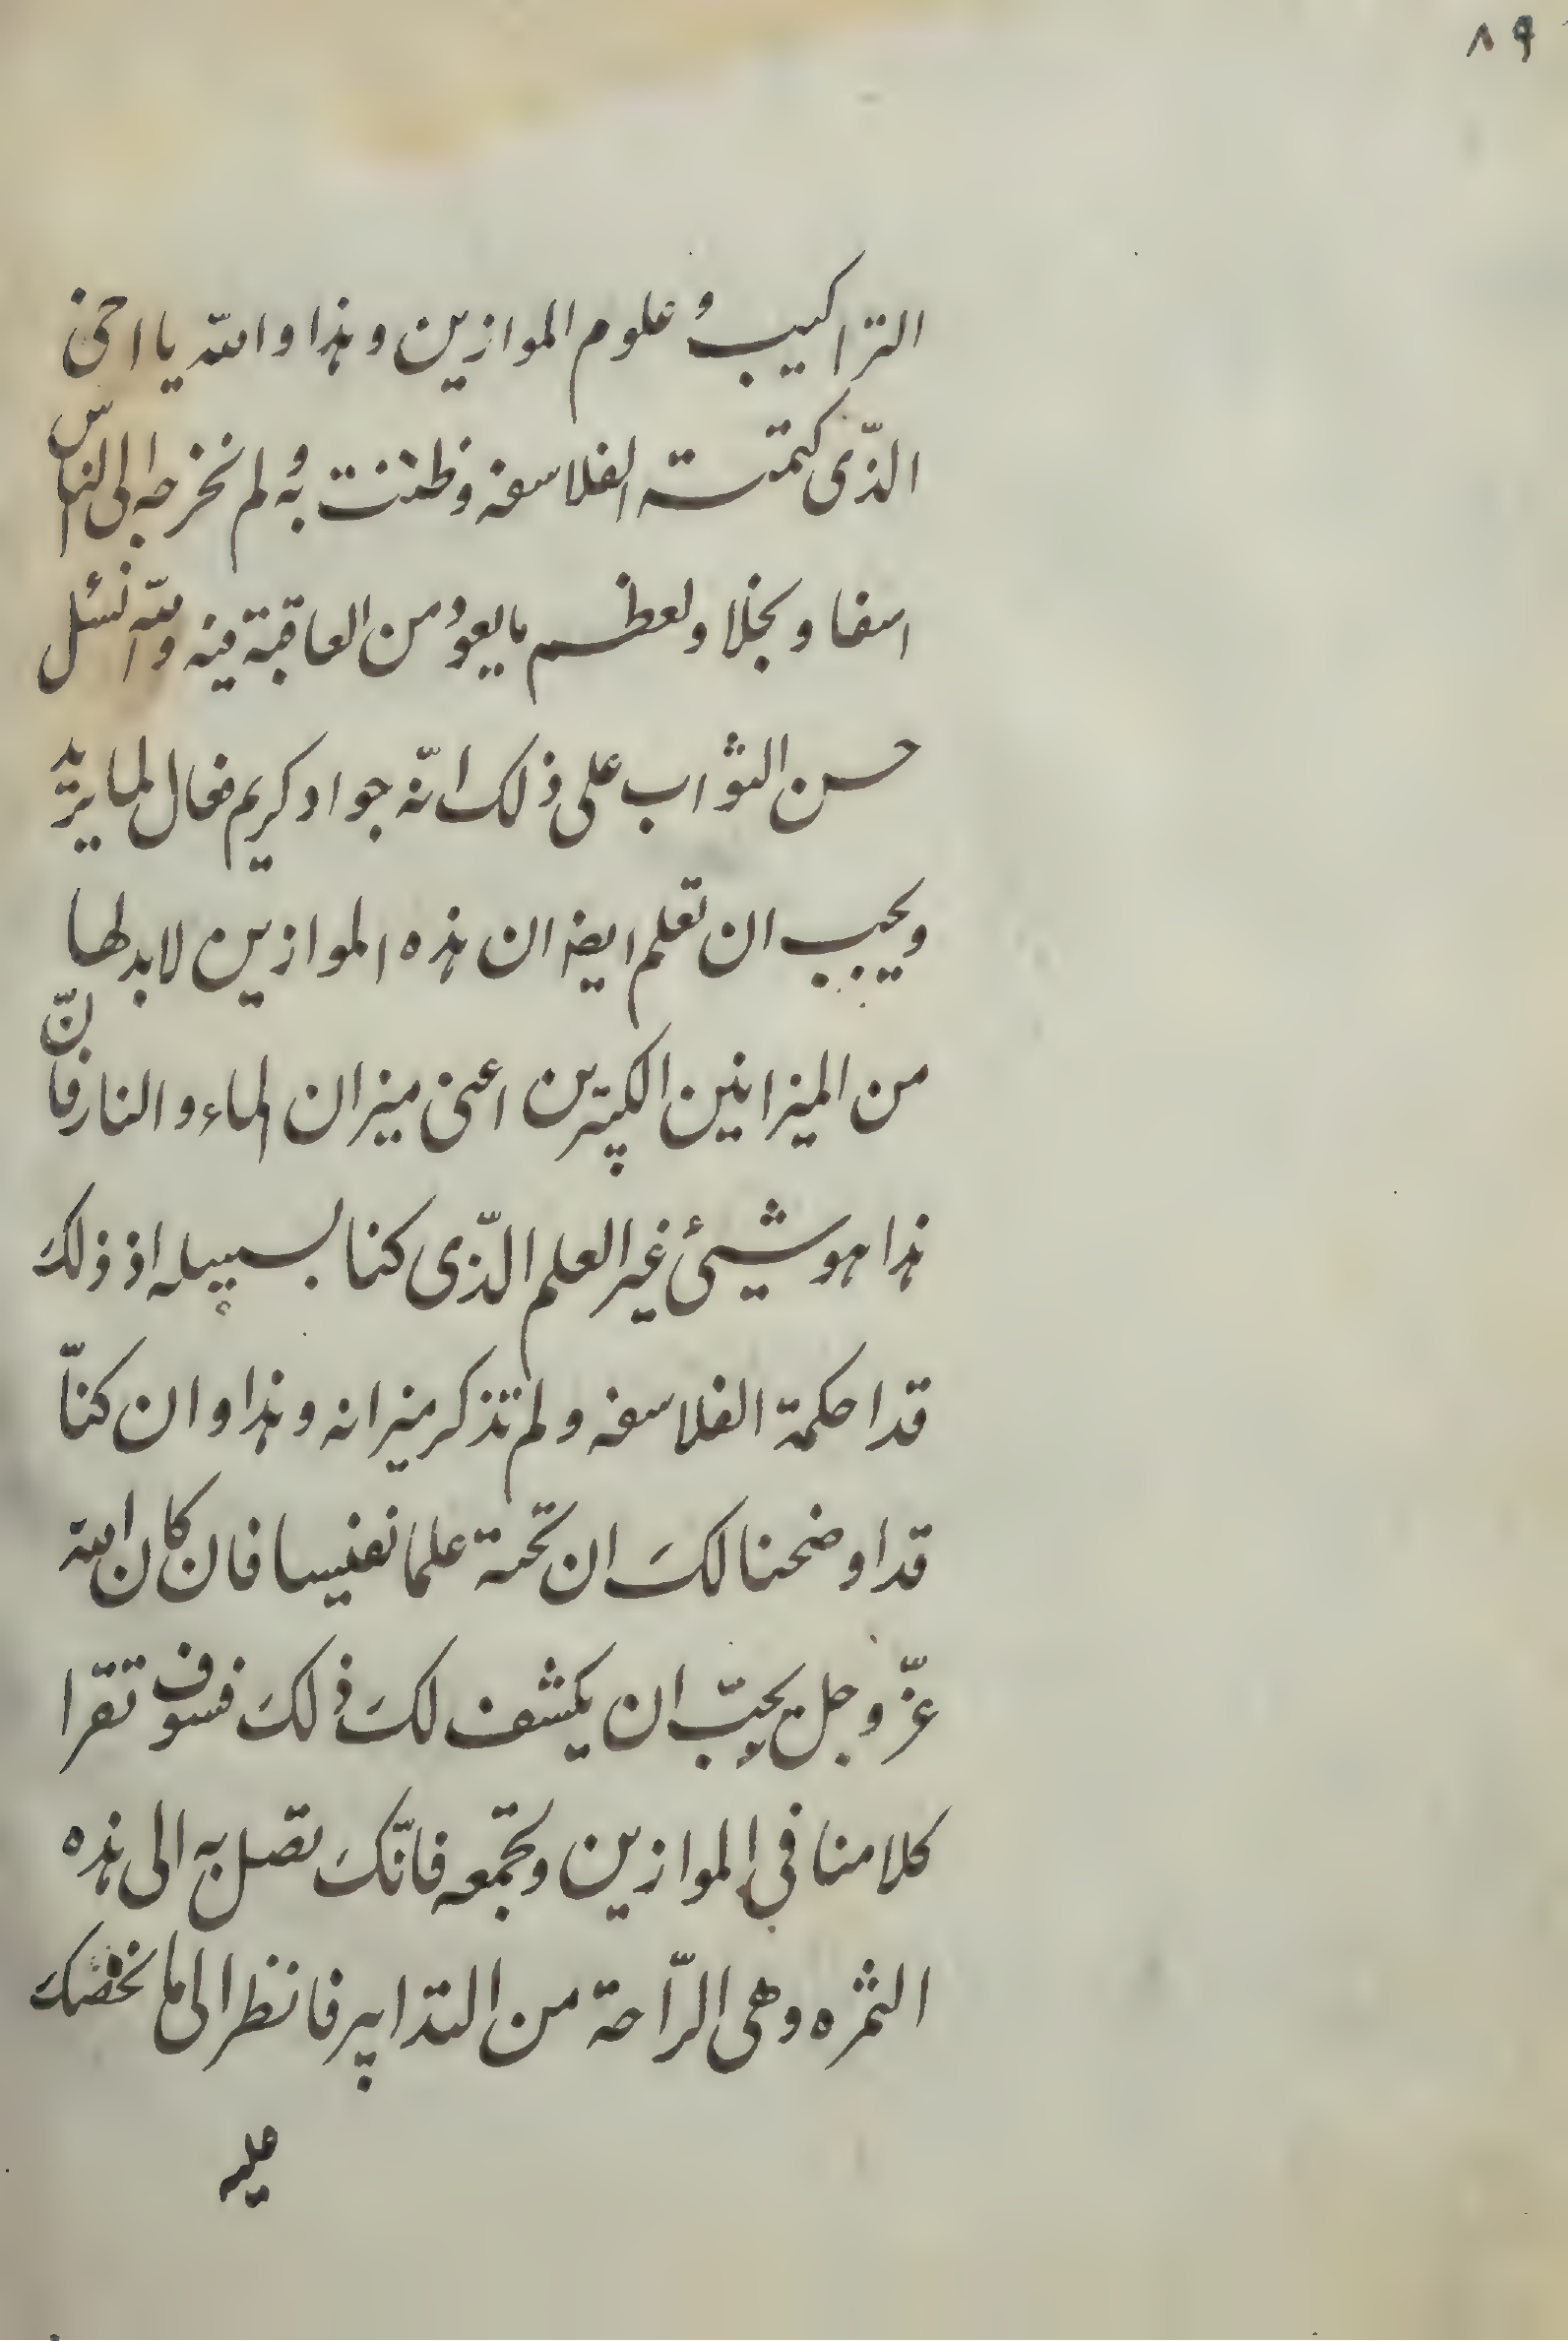 ٨٩
التراكيب و علوم الموازين وهذا والله يا اخى
الذّى كتمته الفلاسفه وظننت به و لم نخرجه الى الناس
اسفا وبخلا ولعظم ما يعود من العاقبة فيه والله نسئل
حسن الثواب على ذلك انّه جواد كريم فعال لما يريد
ويجب ان تعلم ايضا ان هذه الموازين لابد لها
من الميزانين الكبيرين اعنى ميزان الماء و النار فانّ
هذا هو شيئ غير العلم الذّى كنا بسبيله اذ ذلكَ
قد احكمة الفلاسفه ولم تذكر ميزانه وهذا وان كنّا
قد اوضحنا لكَ ان تحته علما نفيسا فان كان الله
عزّ وجل يحبّ ان يكشف لكَ ذلكَ فسوف تقرا
كلامنا فى الموازين وتجمعه فانّكَ تصل به الى هذه
الثمره وهى الرّاحة من التدابير فانظر الى ما نخصّكَ
عليه